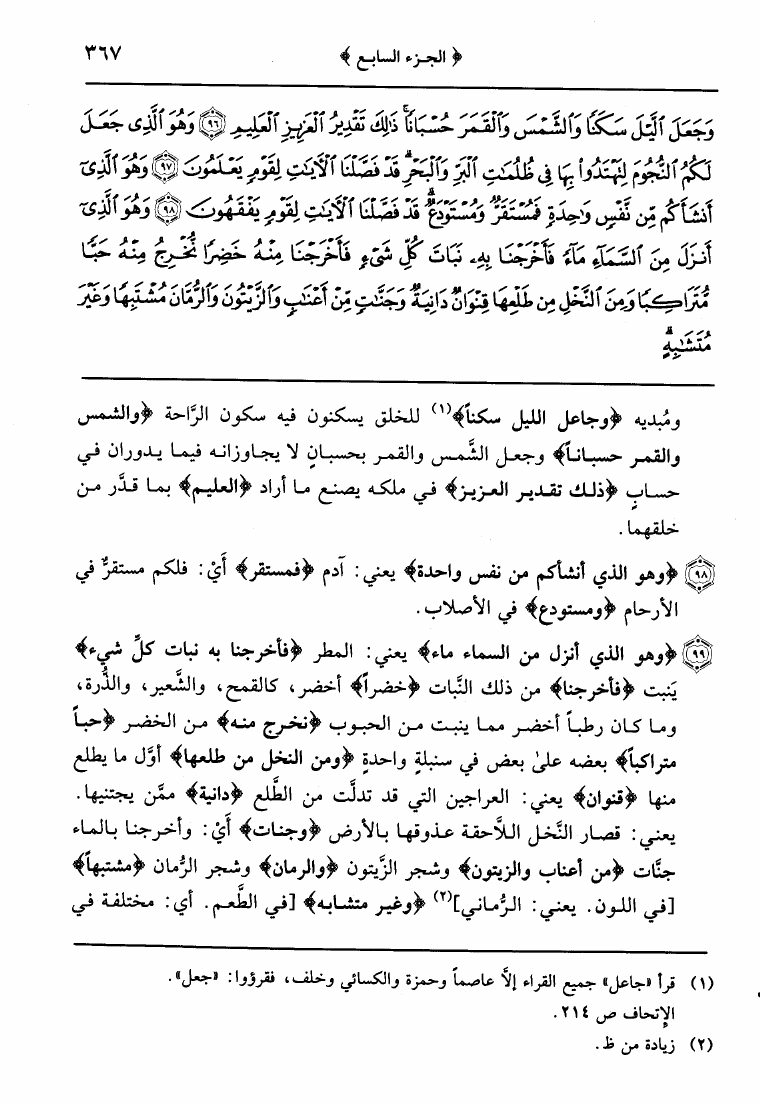 ﴿ الجزء السابع ﴾ ٣٦٧
وَجَعَلَ ٱلَّيۡلَ سَكَنٗا وَٱلشَّمۡسَ وَٱلۡقَمَرَ حُسۡبَانٗاۚ ذَٰلِكَ تَقۡدِيرُ ٱلۡعَزِيزِ ٱلۡعَلِيمِ ٩٦ وَهُوَ ٱلَّذِي جَعَلَ
لَكُمُ ٱلنُّجُومَ لِتَهۡتَدُواْ بِهَا فِي ظُلُمَٰتِ ٱلۡبَرِّ وَٱلۡبَحۡرِۗ قَدۡ فَصَّلۡنَا ٱلۡأٓيَٰتِ لِقَوۡمٖ يَعۡلَمُونَ ٩٧ وَهُوَ ٱلَّذِيٓ
أَنشَأَكُم مِّن نَّفۡسٖ وَٰحِدَةٖ فَمُسۡتَقَرّٞ وَمُسۡتَوۡدَعٞۗ قَدۡ فَصَّلۡنَا ٱلۡأٓيَٰتِ لِقَوۡمٖ يَفۡقَهُونَ ٩٨ وَهُوَ ٱلَّذِيٓ
أَنزَلَ مِنَ ٱلسَّمَآءِ مَآءٗ فَأَخۡرَجۡنَا بِهِۦ نَبَاتَ كُلِّ شَيۡءٖ فَأَخۡرَجۡنَا مِنۡهُ خَضِرٗا نُّخۡرِجُ مِنۡهُ حَبّٗا
مُّتَرَاكِبٗا وَمِنَ ٱلنَّخۡلِ مِن طَلۡعِهَا قِنۡوَانٞ دَانِيَةٞ وَجَنَّٰتٖ مِّنۡ أَعۡنَابٖ وَٱلزَّيۡتُونَ وَٱلرُّمَّانَ مُشۡتَبِهٗا وَغَيۡرَ
مُتَشَٰبِهٍۗ
ومُبديه ﴿وجاعل الليل سكناً﴾(١) للخلق يسكنون فيه سكون الرَّاحة ﴿والشمس
والقمر حسباناً﴾ وجعل الشَّمس والقمر بحسبانٍ لا يجاوزانه فيما يدوران في
حسابٍ ﴿ذلك تقدير العزيز﴾ في ملكه يصنع ما أراد ﴿العليم﴾ بما قدَّر من
خلقهما.
٩٨ ﴿وهو الذي أنشأكم من نفس واحدة﴾ يعني: آدم ﴿فمستقر﴾ أَيْ: فلكم مستقرٌ في
الأرحام ﴿ومستودع﴾ في الأصلاب.
٩٩ ﴿وهو الذي أنزل من السماء ماء﴾ يعني: المطر ﴿فأخرجنا به نبات كلِّ شيء﴾
يَنبت ﴿فأخرجنا﴾ من ذلك النَّبات ﴿خضراً﴾ أخضر، كالقمح، والشَّعير، والذُّرة،
وما كان رطباً أخضر مما ينبت من الحبوب ﴿نخرج منه﴾ من الخضر ﴿حباً
متراكباً﴾ بعضه علىٰ بعض في سنبلةٍ واحدةٍ ﴿ومن النخل من طلعها﴾ أوَّل ما يطلع
منها ﴿قنوان﴾ يعني: العراجين التي قد تدلَّت من الطَّلع ﴿دانية﴾ ممَّن يجتنيها.
يعني: قصار النَّخل اللَّاحقة عذوقها بالأرض ﴿وجنات﴾ أَيْ: وأخرجنا بالماء
جنَّات ﴿من أعناب والزيتون﴾ وشجر الزَّيتون ﴿والرمان﴾ وشجر الرُّمان ﴿مشتبهاً﴾
[في اللون. يعني: الرُّماني](٢) ﴿وغير متشابه﴾ [في الطَّعم. أي: مختلفة في
(١) قرأ «جاعل» جميع القراء إلَّا عاصماً وحمزة والكسائي وخلف، فقرؤوا: «جعل».
الإتحاف ص ٢١٤.
(٢) زيادة من ظ.